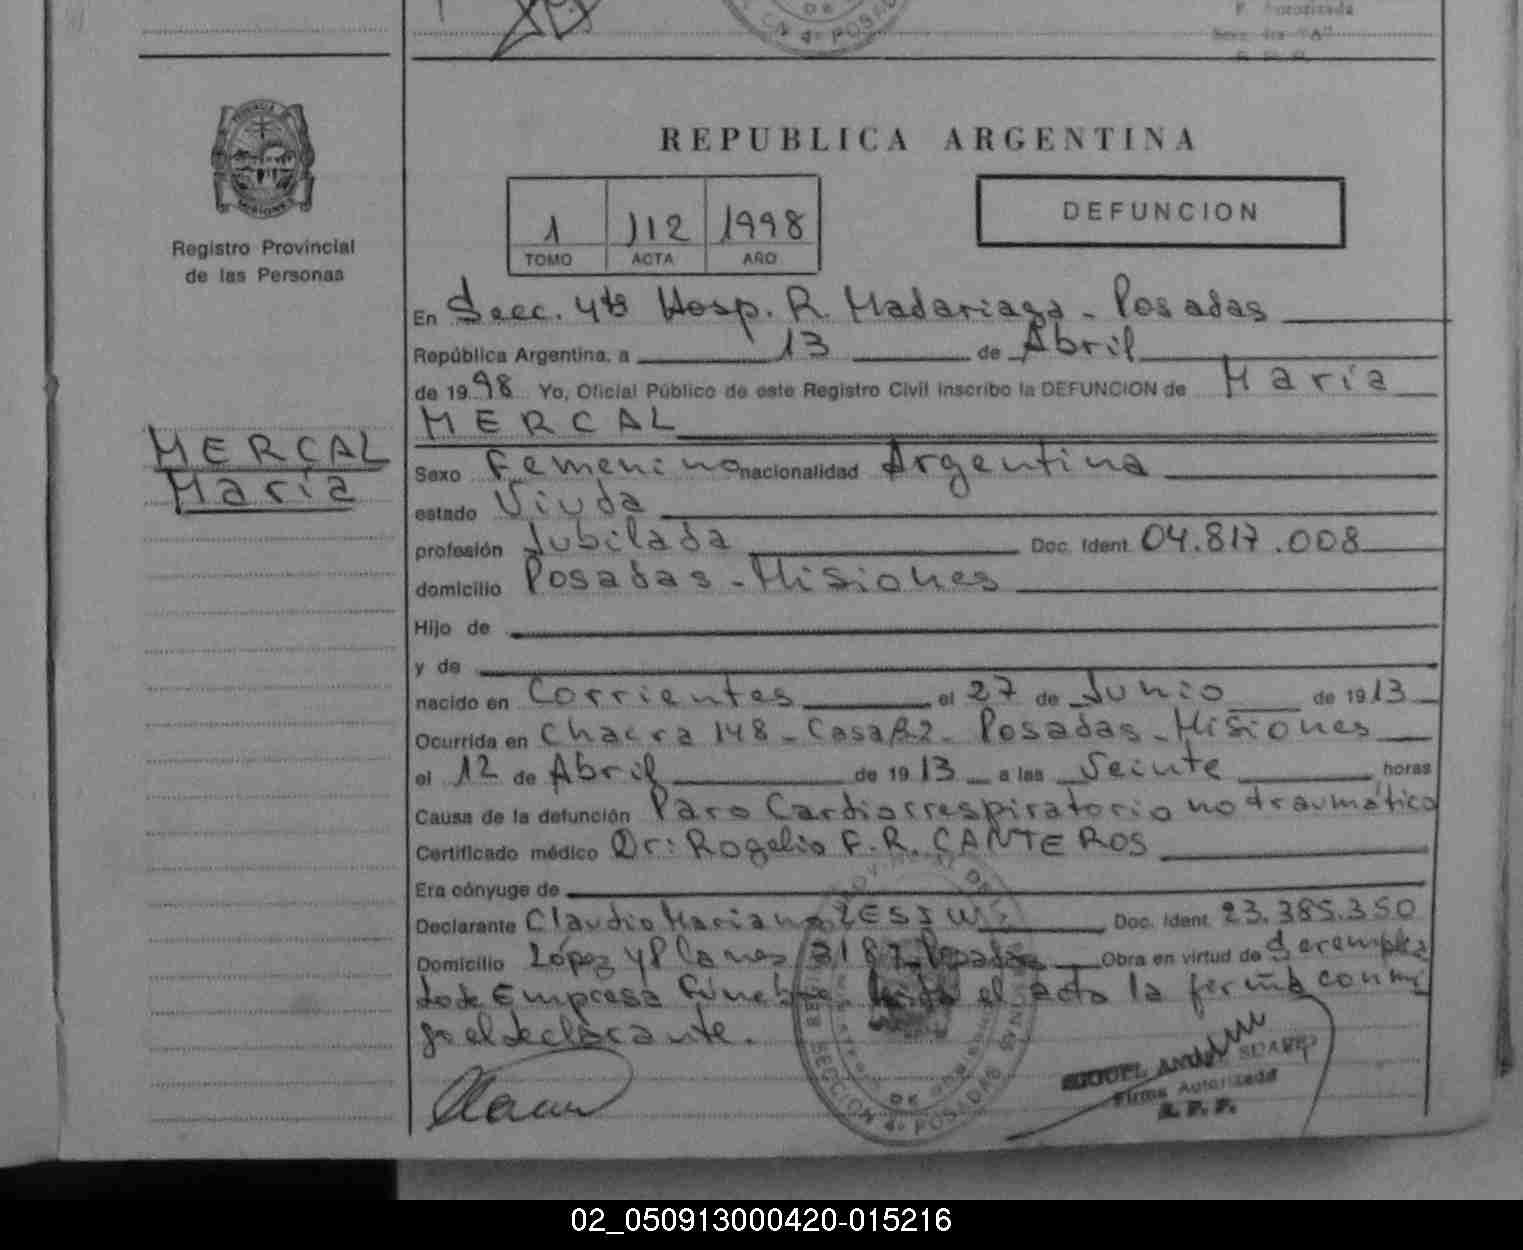 DE
ON 4ª POSADAS
F. Autorizada
Registro Provincial
de las Personas
MERCAL
María
REPUBLICA ARGENTINA
DEFUNCION
1 112 1998
TOMO ACTA AÑO
En Secc. 4ta Hosp. R. Madariaga - Posadas
República Argentina, a 13 de Abril
de 1998 Yo, Oficial Público de este Registro Civil inscribo la DEFUNCION de María
MERCAL
Sexo Femenino nacionalidad Argentina
estado Viuda
profesión Jubilada Doc. Ident. 04.817.008
domicilio Posadas - Misiones
Hijo de
y de
nacido en Corrientes el 27 de Junio de 1913
Ocurrida en Chacra 148 - Casa 82 - Posadas - Misiones
el 12 de Abril de 1913 a las Veinte horas
Causa de la defunción Paro Cardiorrespiratorio no traumático
Certificado médico Dr: Rogelio F. R. CANTEROS
Era cónyuge de
Declarante Claudio Mariano Doc. Ident. 23.385.350
Domicilio López y Planes 2187 Posadas Obra en virtud de Ser emplea
do de Empresa Fúnebre. Leída el acta la firma conmi
go el declarante.
SECCION 4ª POSADAS
Firma Autorizada
R. P. P.
02_050913000420-015216